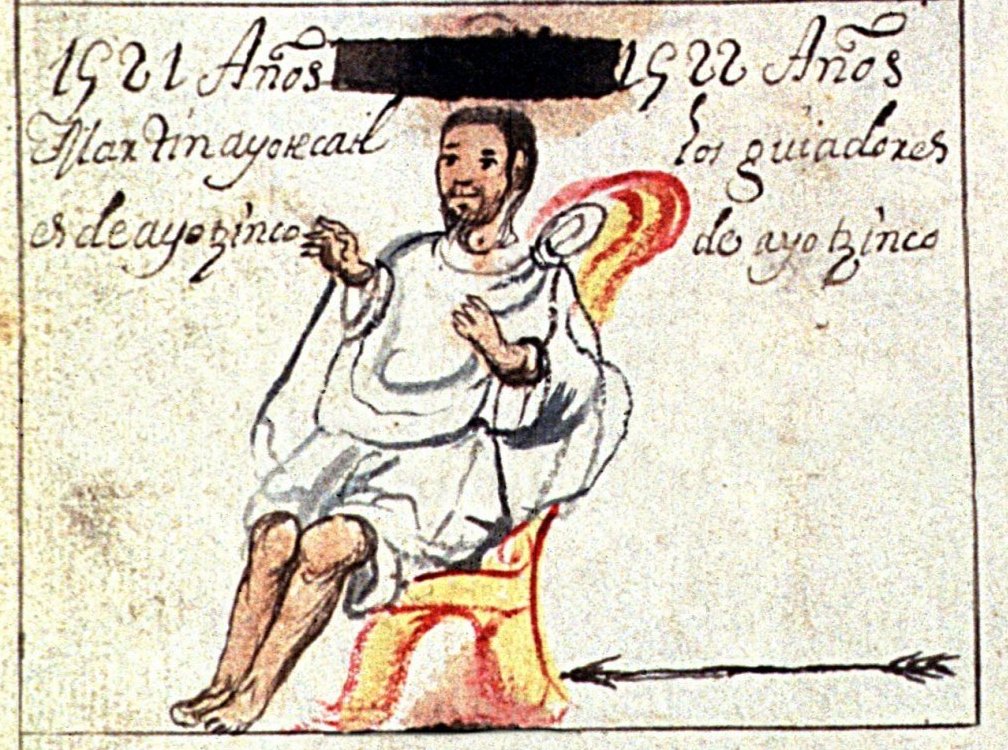 1521 Años 1522 Años
Martin ayotecatl los guiadores
es de ayotzinco de ayotzinco